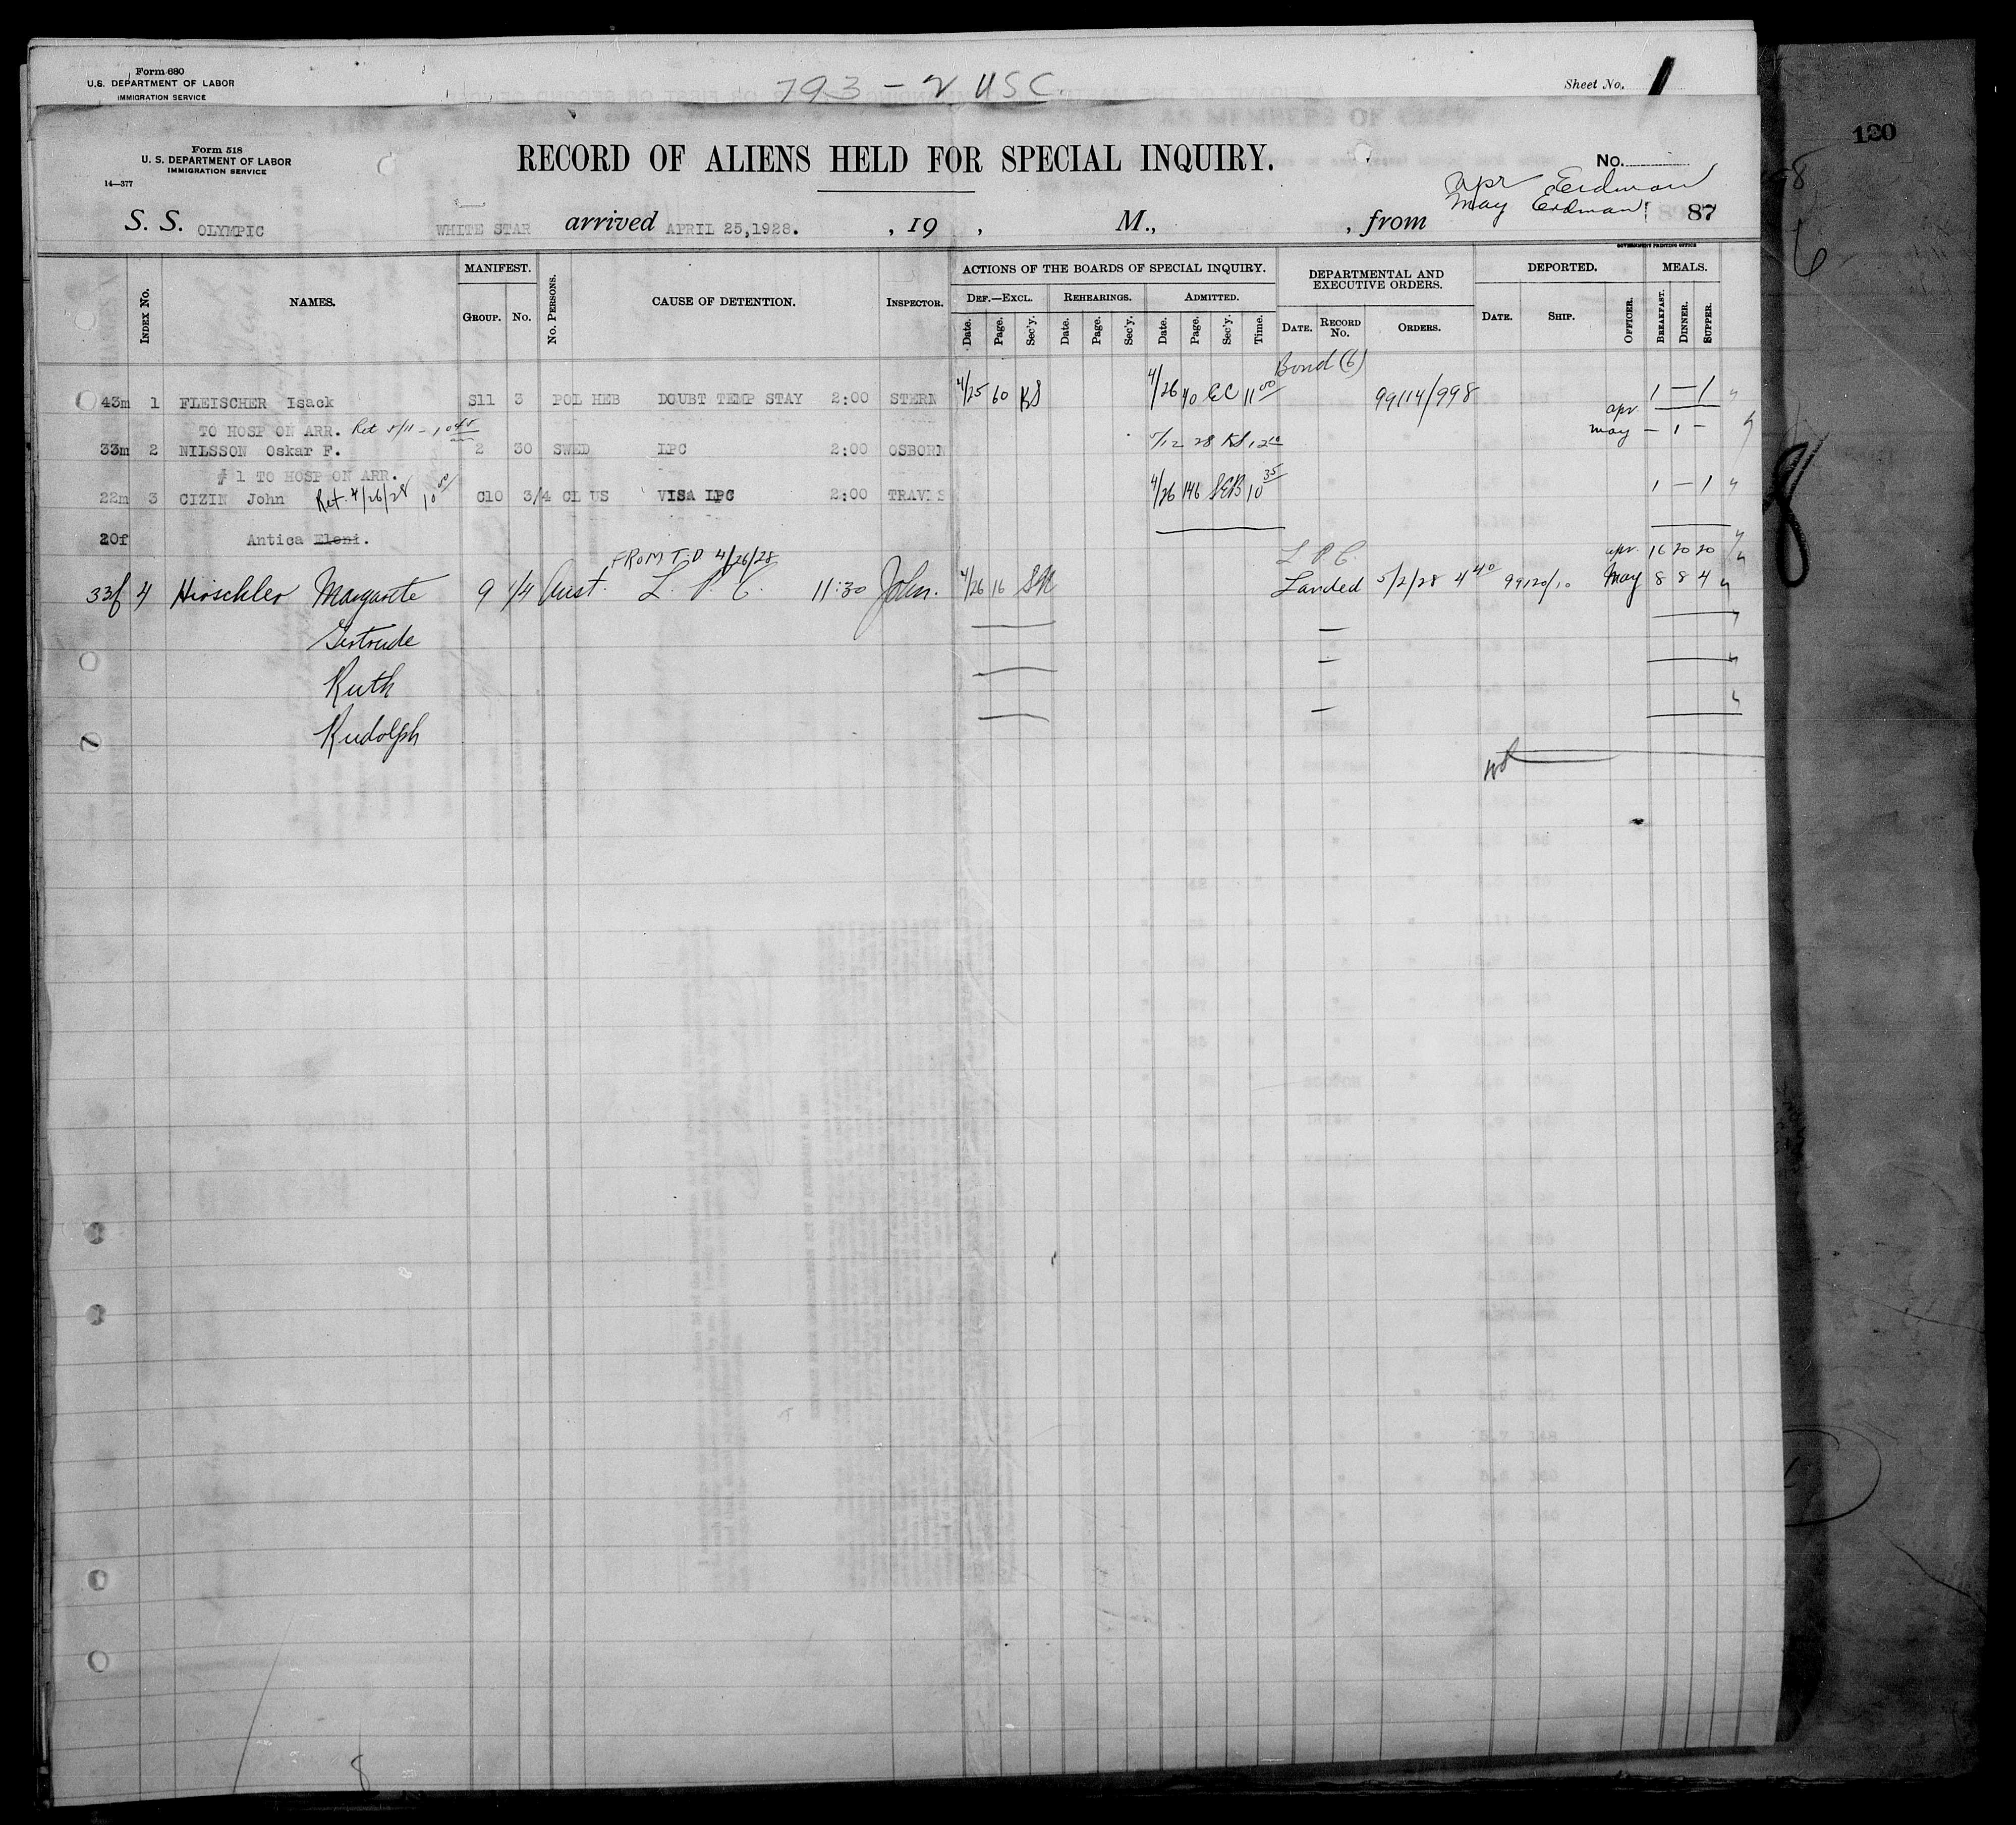 Form 680
U.S. DEPARTMENT OF LABOR
IMMIGRATION SERVICE
793 - 2 USC.
Sheet No. 1
120
Form 518
U. S. DEPARTMENT OF LABOR
IMMIGRATION SERVICE
14—377
RECORD OF ALIENS HELD FOR SPECIAL INQUIRY.
No.
apr Erdman
May Erdman
87
S. S. OLYMPIC WHITE STAR arrived APRIL 25,1928. , 19 , M., , from
GOVERNMENT PRINTING OFFICE
INDEX No. NAMES. MANIFEST. GROUP. No. No. PERSONS. CAUSE OF DETENTION. INSPECTOR.
ACTIONS OF THE BOARDS OF SPECIAL INQUIRY.
DEF.—EXCL. Date. Page. Sec'y.
REHEARINGS. Date. Page. Sec'y.
ADMITTED. Date. Page. Sec'y. Time.
DEPARTMENTAL AND EXECUTIVE ORDERS. DATE. RECORD No. ORDERS.
DEPORTED. DATE. SHIP. OFFICER.
MEALS. BREAKFAST. DINNER. SUPPER.
Bond (6)
43m 1 FLEISCHER Isack S11 3 POL HEB DOUBT TEMP STAY 2:00 STERN 4/25 60 KS 4/26 40 EC 11 00 99114/998 1 — 1
TO HOSP ON ARR. Ret 5/11 - 10 45 am apr —
33m 2 NILSSON Oskar F. 2 30 SWED LPC 2:00 OSBORN 5/12 28 KS 12 10 May — 1 —
# 1 TO HOSP ON ARR.
22m 3 CIZIN John Ret. 4/26/28 10 00 C10 3/4 CL US VISA LPC 2:00 TRAVIS 4/26 146 SEB 10 35 1 — 1
20f Antica Eleni.
FROM T.D 4/26/28 L P C. apr. 16 20 20
33f 4 Hirschler Margarete 9 1/4 Aust. L. P. C. 11:30 John. 4/26 16 SN Landed 5/2/28 4 40 99120/10 May 8 8 4
Gertrude
Ruth
Rudolph
8